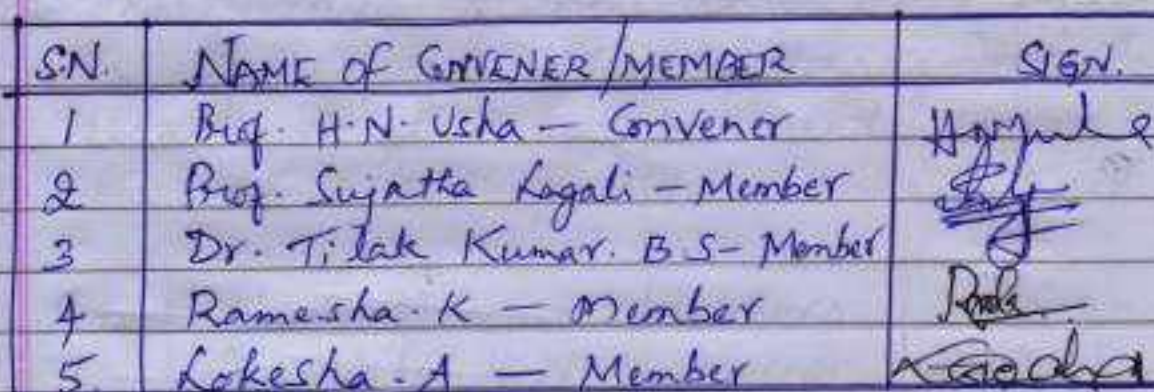 S.N. NAME OF CONVENER/MEMBER SIGN.
1 Prof. H.N. Usha - Convener
2 Prof. Sujatha Lagali - Member
3 Dr. Tilak Kumar. B S - Member
4 Ramesha. K - Member
5. Lokesha. A - Member